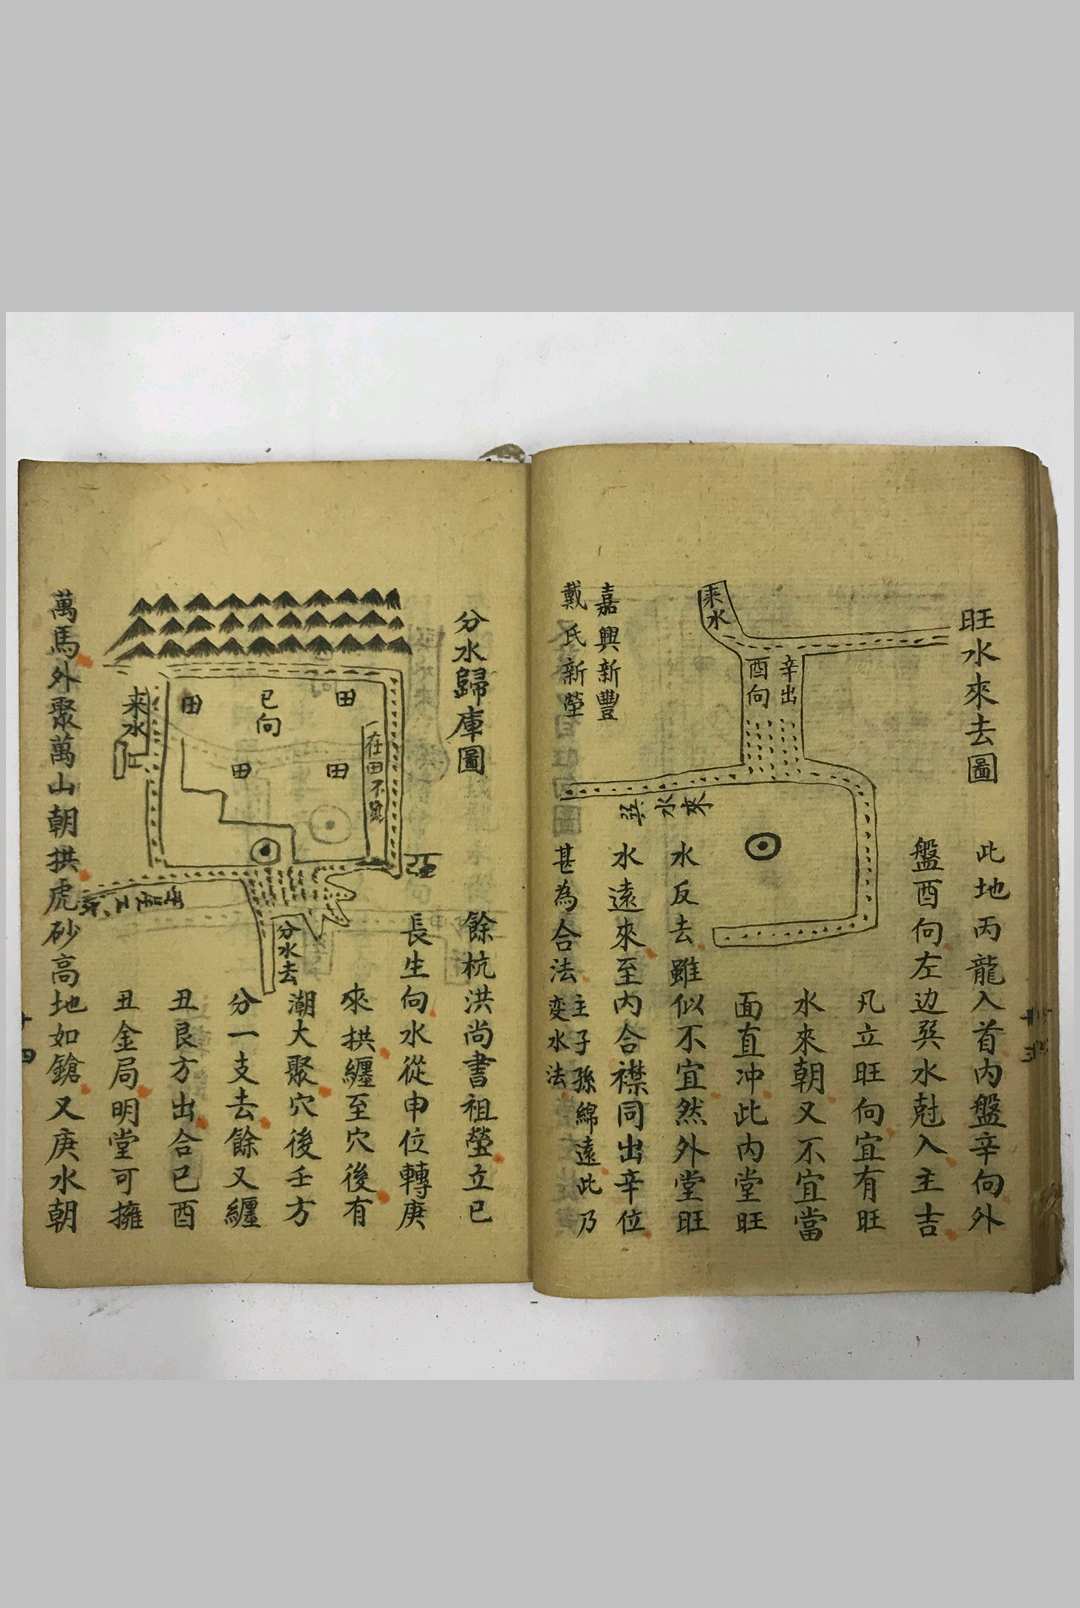 旺水來去圖
来水
辛出
酉向
巽水來
此地丙龍入首內盤辛向外
盤酉向左边巽水尅入主吉
凡立旺向宜有旺
水來朝又不宜當
面直冲此內堂旺
水反去雖似不宜然外堂旺
水遠來至內合襟同出辛位
甚為合法主子孫綿遠此乃
变水法
嘉興新豐
戴氏新塋
分水歸庫圖
来水
田
巳向
田
田
田
分水去
餘杭洪尚書祖塋立巳
長生向水從申位轉庚
來拱纏至穴後有
潮大聚穴後壬方
分一支去餘又纏
丑艮方出合巳酉
丑金局明堂可擁
萬馬外聚萬山朝拱虎砂高地如鎗又庚水朝
十四